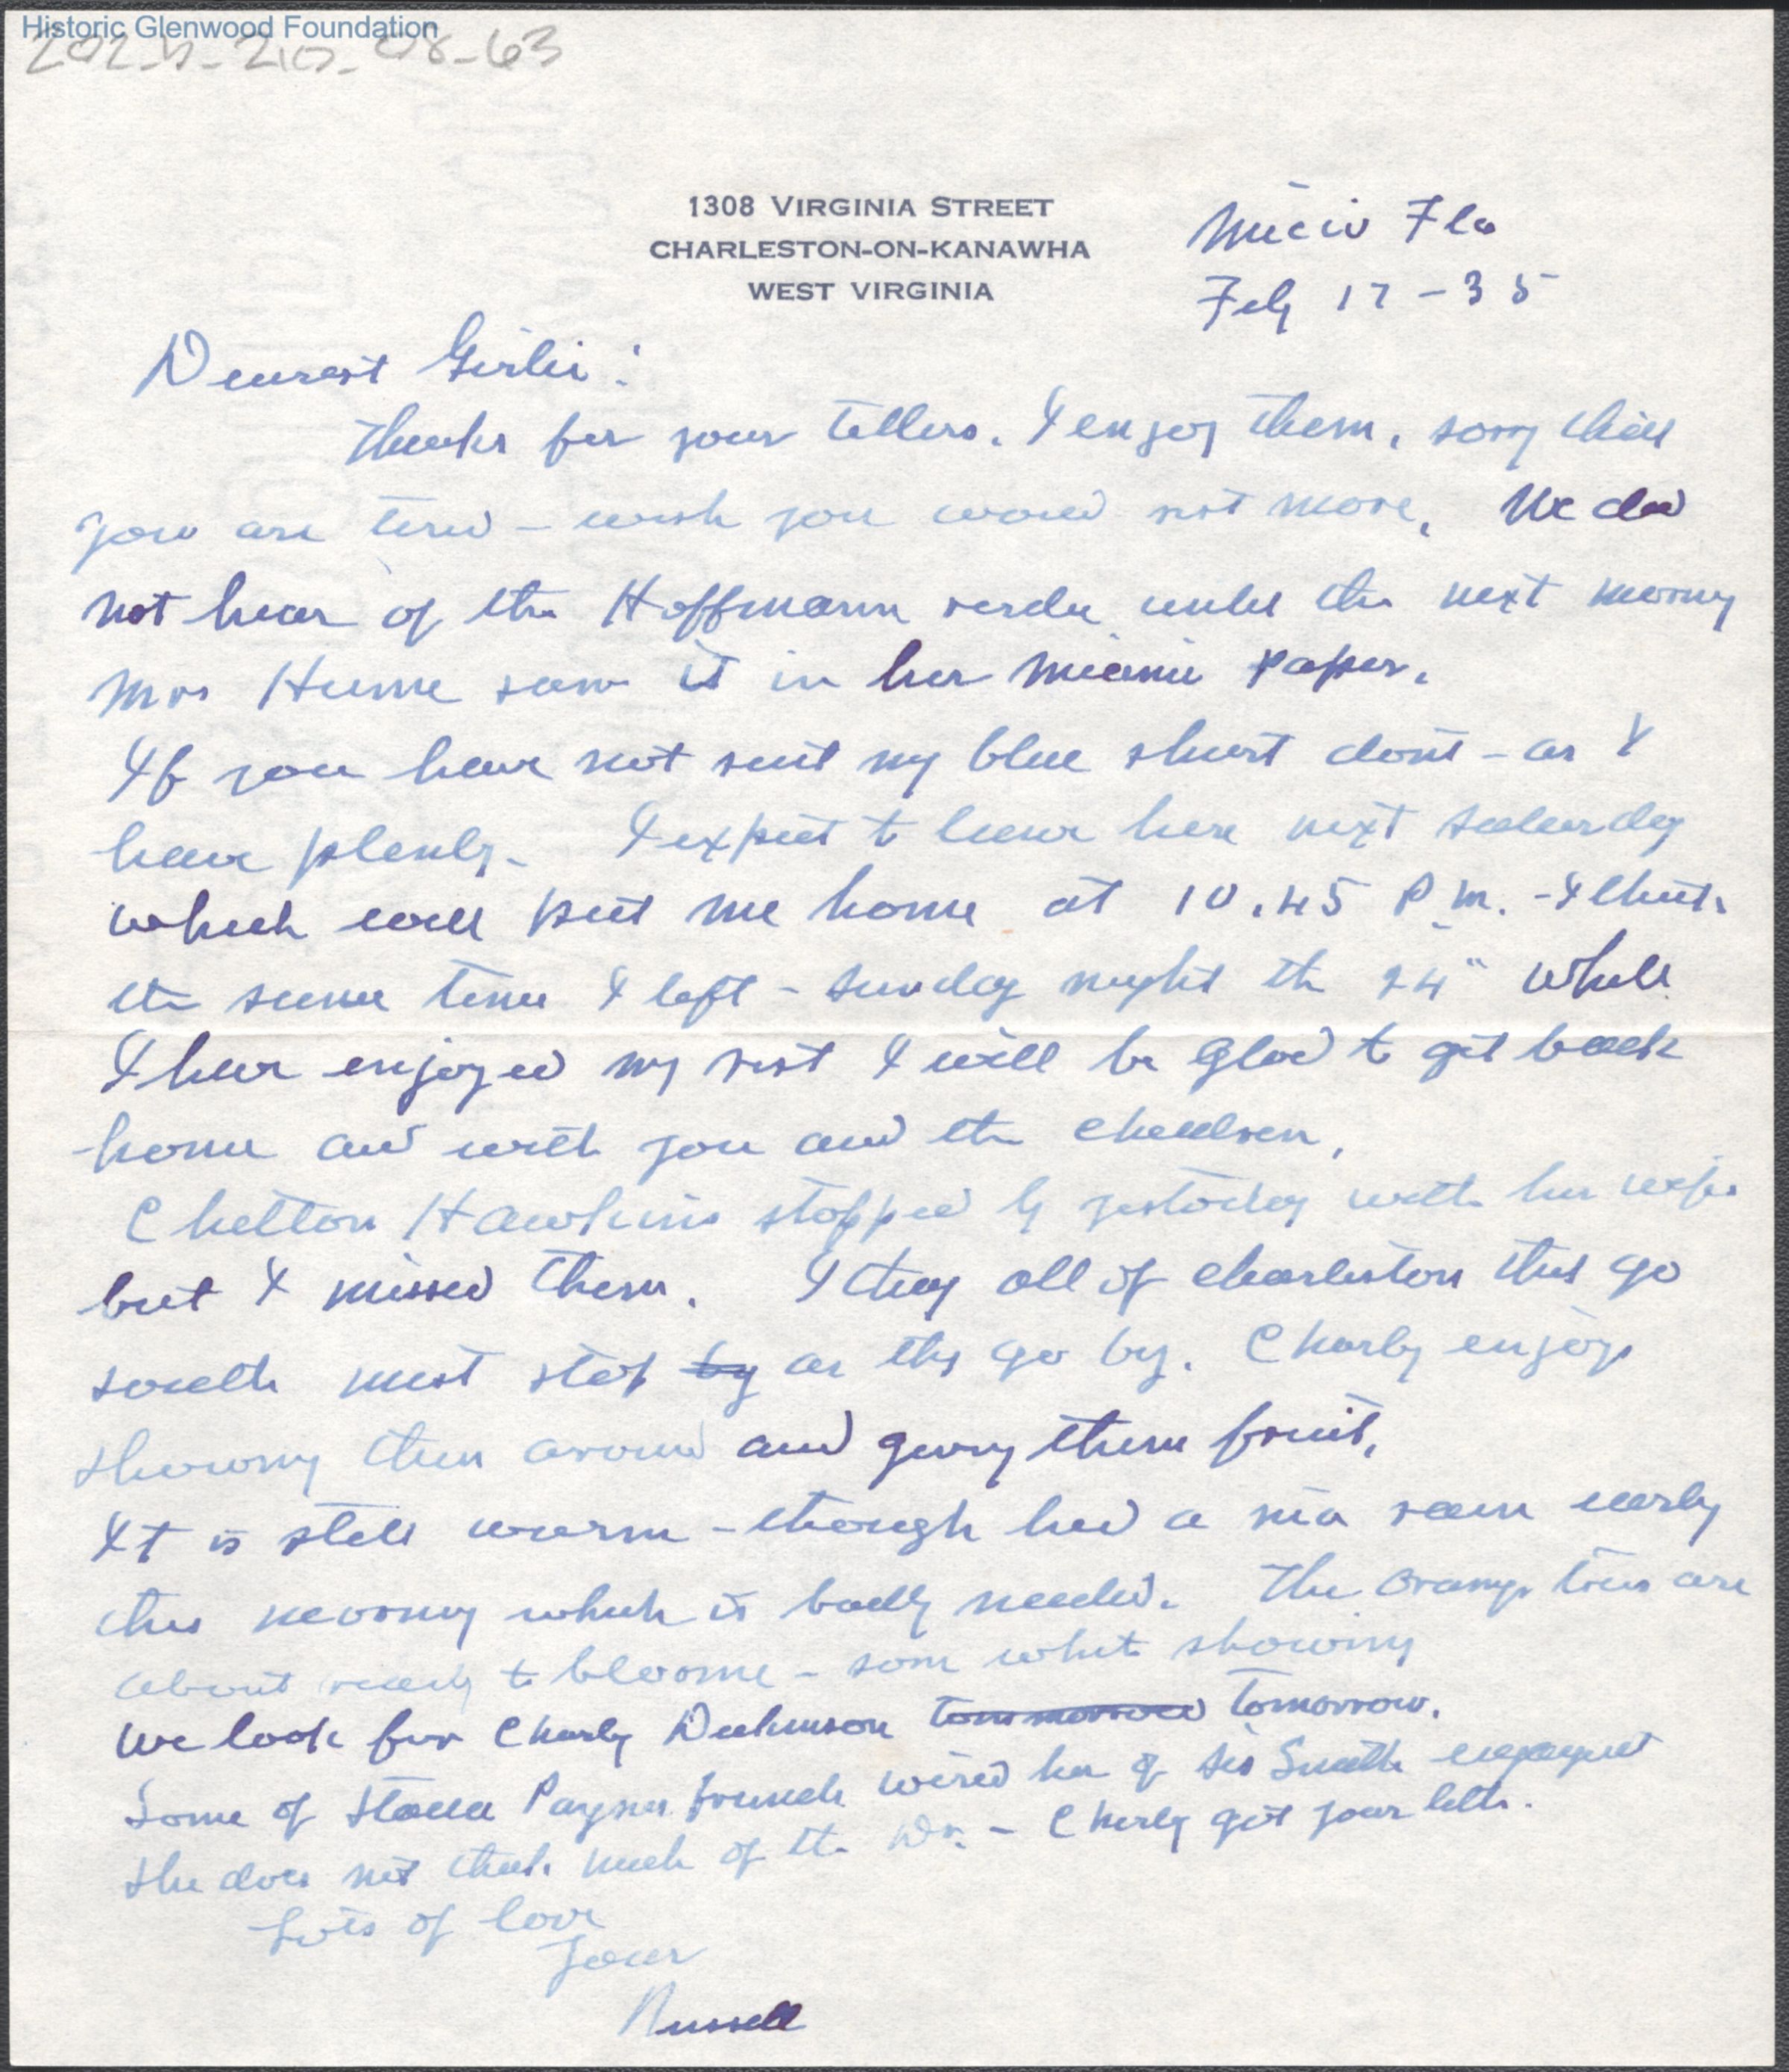 Historic Glenwood Foundation
202-4-210-08-63
1308 VIRGINIA STREET
CHARLESTON-ON-KANAWHA
WEST VIRGINIA
Fla
Feby 17 - 35
Dearest Girlie:
Thanks for your letters. I enjoy them, sorry that
you are tired - wish you would not move. We did
not hear of the Hoffmann verdic until the next morny
Mrs Hume saw it in her Miami Paper.
If you have not sent my blue shirt dont - as I
have plenty. I expect to leave here next Saturday
which will put me home at 10.45 P.M. - I think
the same time I left - Sunday night the 24" While
I have enjoyed my rest I will be glad to get back
home and with you and the children.
Chelton Hawkins stopped by yestoday with his wife
but I missed them. I they all of Charleston that go
south must stop by as they go by. Charly enjoys
showing them around and giving them fruit.
It is still warm - though had a nice rain early
this morning which is badly needed. The orange trees are
about ready to bloome - some white showing
We look for Charly Dickinson tommorrow tomorrow.
Some of Payne friends wired her of Sis Smith engagement
She does not think much of the Dr. - Charly got your letter.
Lots of love
Your
Russell